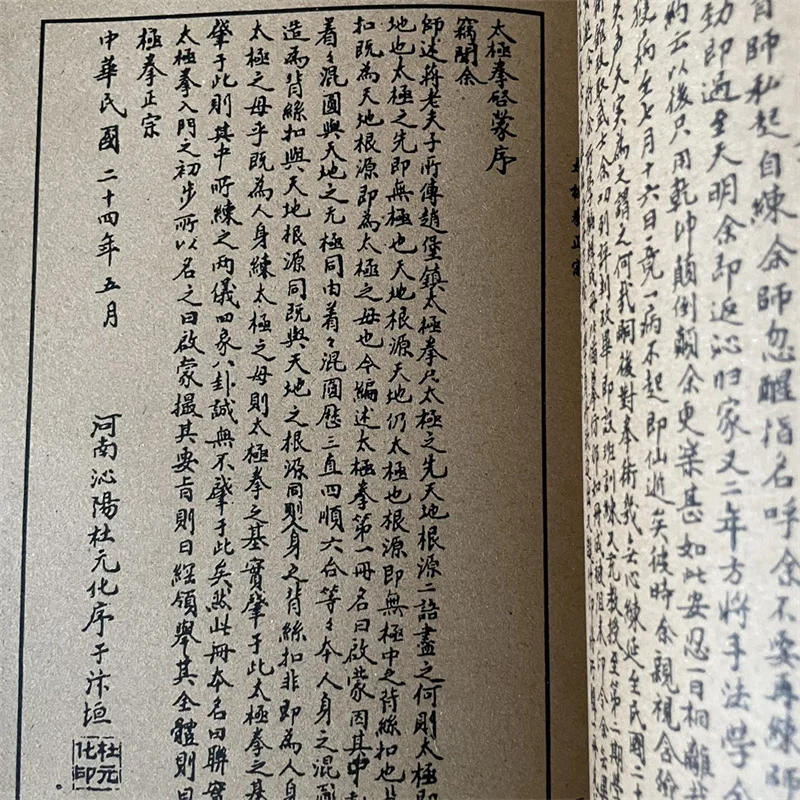 師私起自練余師忽醒指名呼余不要再練師
勁即過至天明余即返沁归家又二年方將手法學
云以後只用乾坤顛倒顛余更樂甚如此安忍一日相離
天實為之謂之何哉嗣後對拳術我去心練延至民國二十
病至七月十六日竟一病不起即仙逝矣彼時余親視含
太極拳正宗
太極拳啓蒙序
竊聞余
師述蔣老夫子所傳趙堡鎮太極拳只太極之先天地根源二語盡之何則太極即
地也太極之先即無極也天地根源天地仍太極也根源即無極中之背絲扣也
扣既為天地根源即為太極之母也今編述太極拳第一冊名曰啟蒙因其中
着々混圓與天地之无極同由着々混圓歷三直四順六合等々本人身之混
造為背絲扣與天地根源同既與天地之根源同則人身之背絲扣非即為人身
太極之母乎既為人身練太極之母則太極拳之基實肇于此太極拳之基
肇于此則其中所練之两儀四象八卦誠無不肇于此矣然此冊本名曰聯
太極拳入門之初步所以名之曰啟蒙撮其要旨則曰經領舉其全體則曰
極拳正宗
中華民國二十四年五月
河南沁陽杜元化序于汴垣
杜元化印